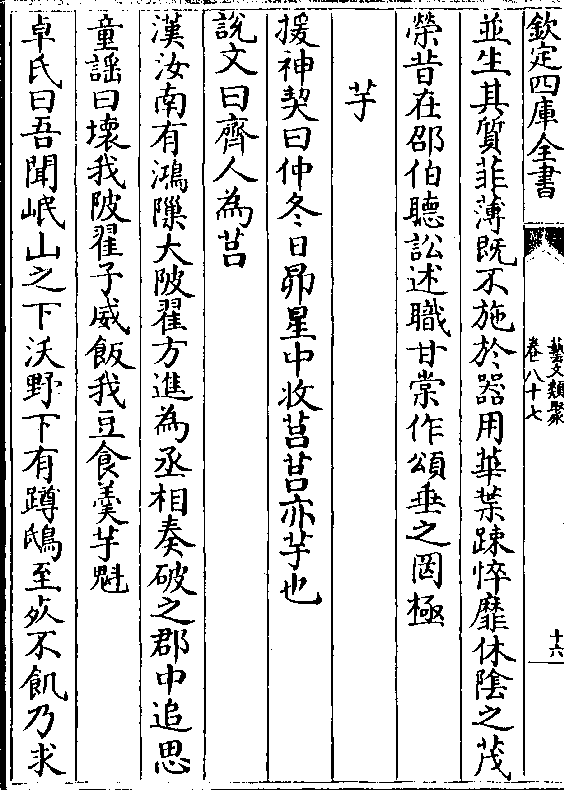 欽定四庫全書
藝文類聚
卷八十七
十六
並生其質菲薄既不施於器用華葉踈悴靡休陰之茂
榮昔在邵伯聽訟述職甘棠作頌垂之罔極
芋
援神契曰仲冬日昴星中收莒莒亦芋也
說文曰齊人為莒
漢汝南有鴻隟大陂翟方進為丞相奏破之郡中追思
童謡曰壊我陂翟子威飯我豆食羹芋魁
卓氏曰吾聞岷山之下沃野下有蹲鴟至死不飢乃求